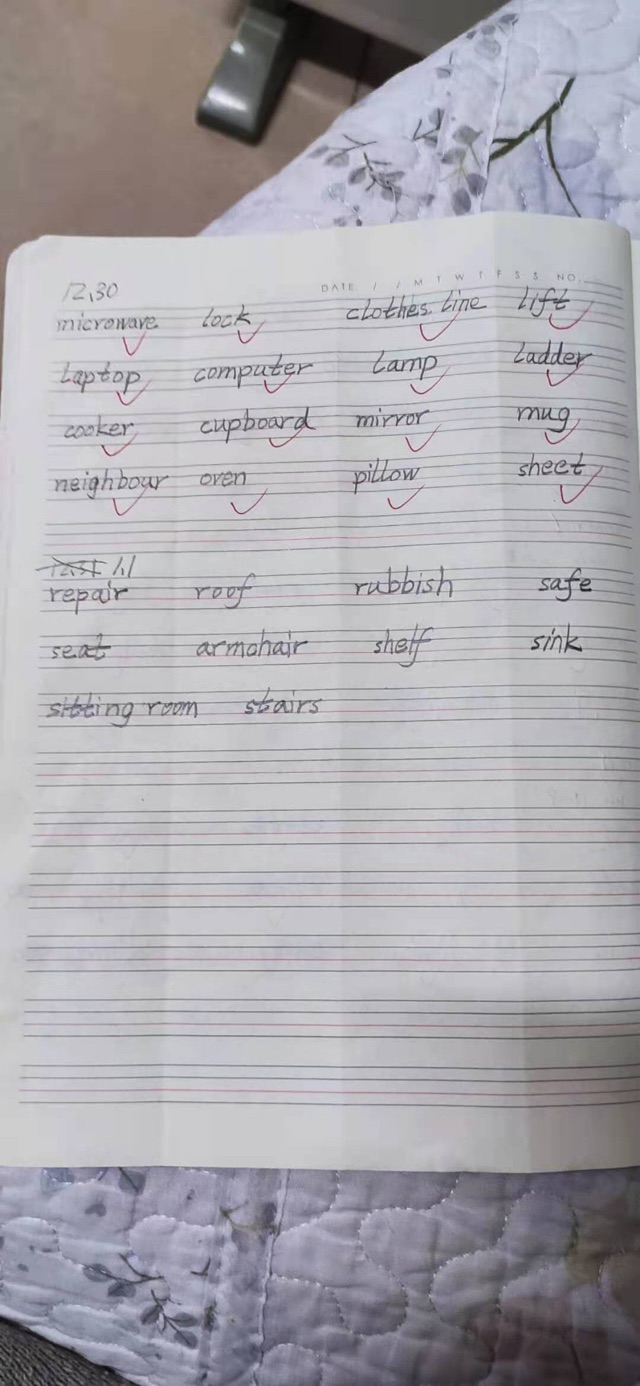 DATE / / M T W T F S S NO.
12,30
microwave lock clothes line lift
laptop computer lamp ladder
cooker cupboard mirror mug
neighbour oven pillow sheet
1.1
repair roof rubbish safe
seat armchair shelf sink
sitting room stairs